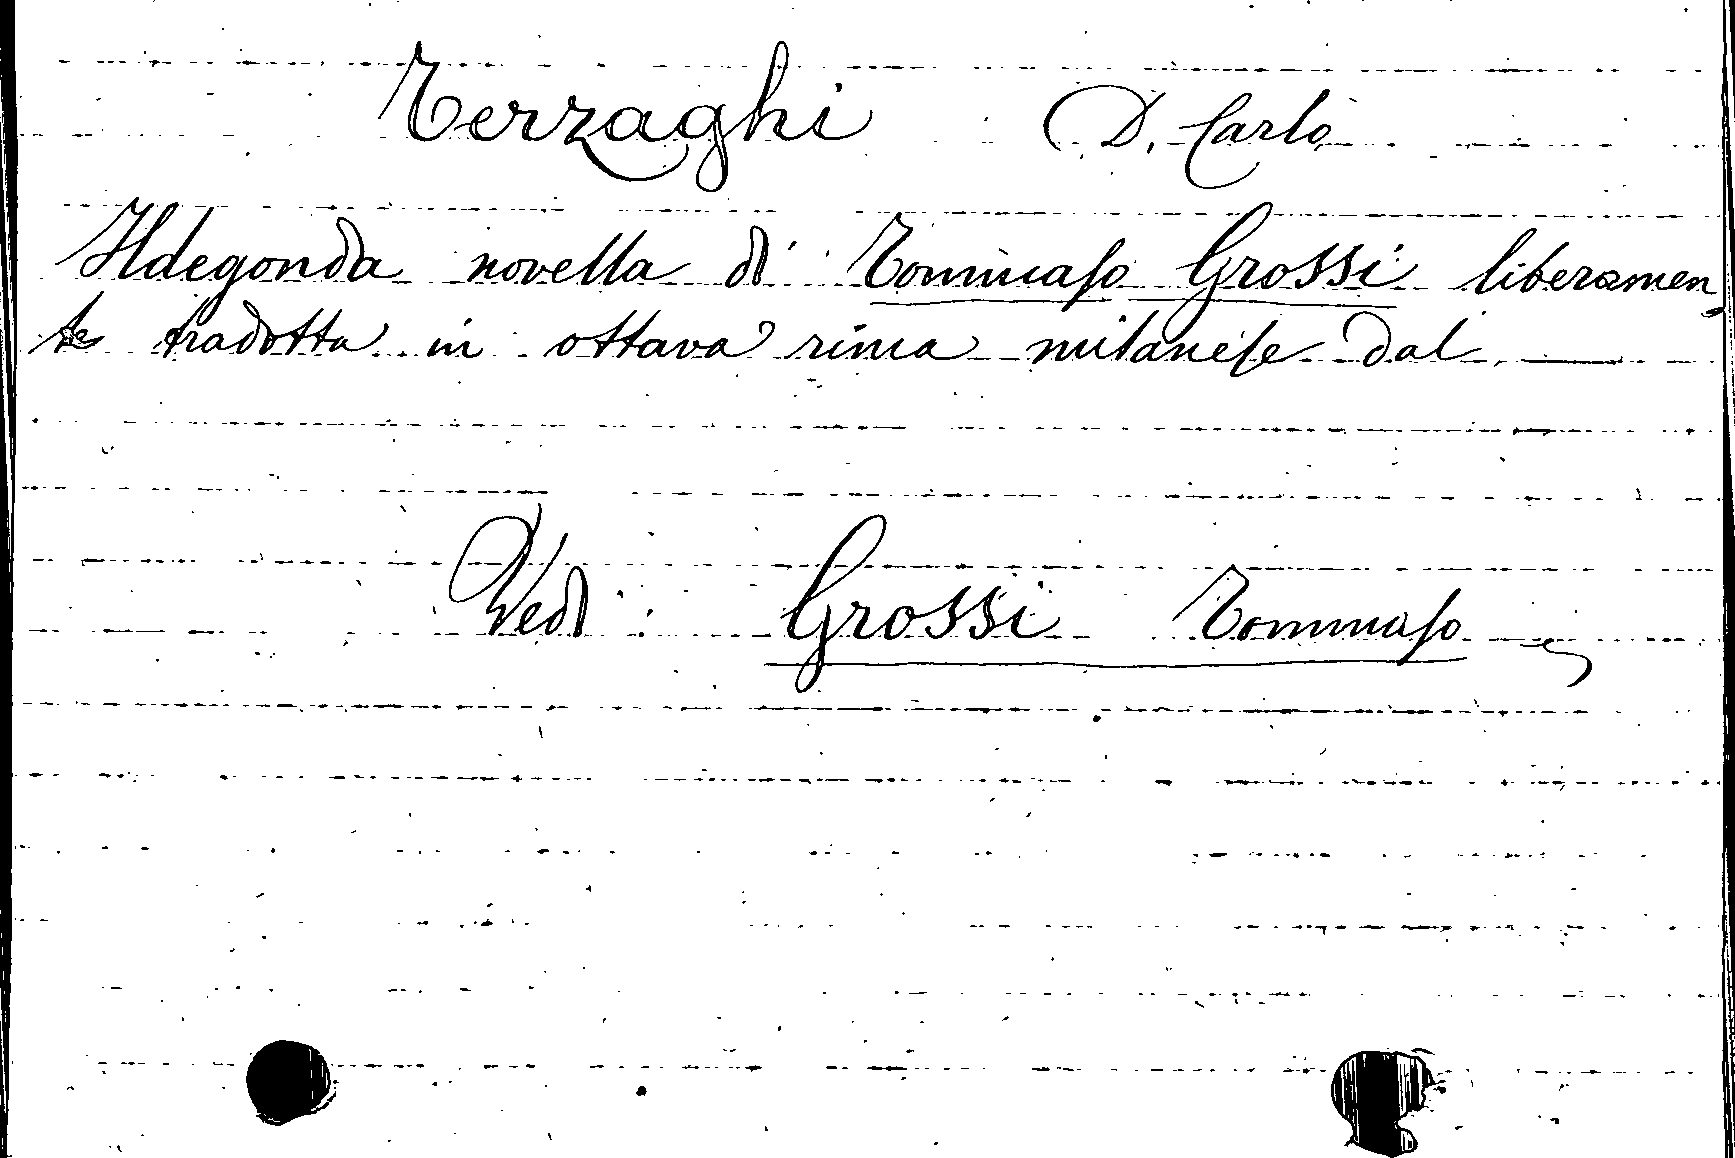 Terzaghi D. Carlo
Ildegonda novella di Tommaso Grossi liberamen
te tradotta in ottava rima milanese dal —
Vedi: Grossi Tommaso